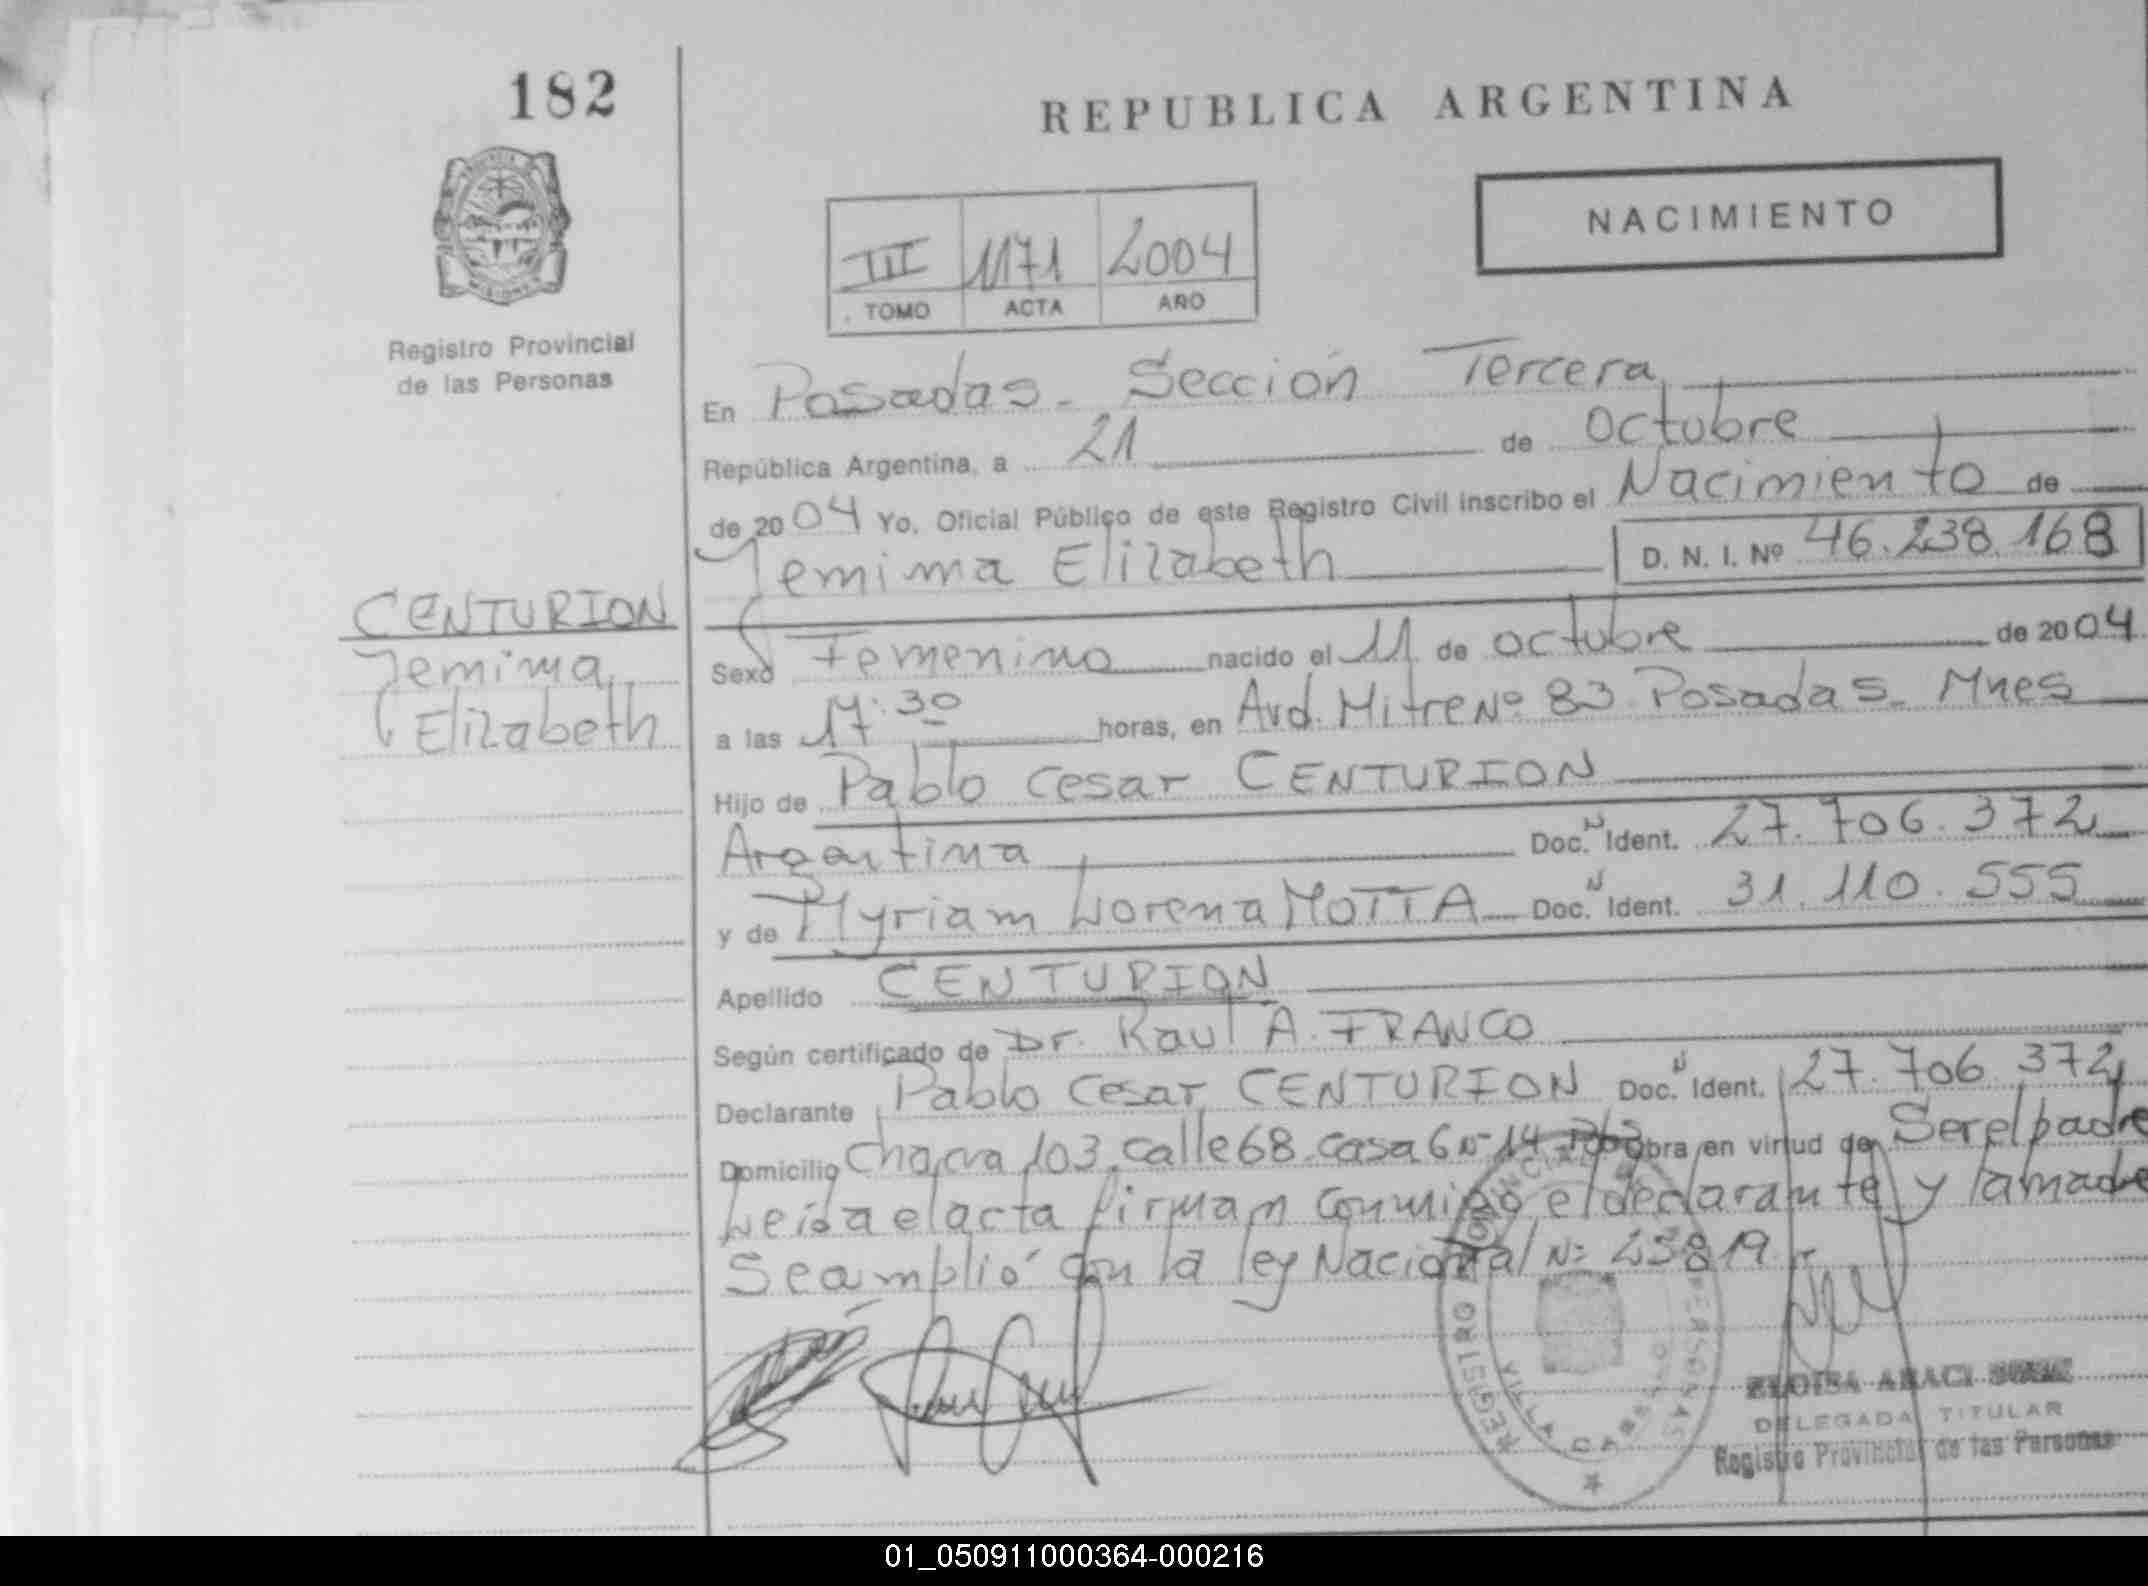 182
REPUBLICA ARGENTINA
NACIMIENTO
III 1171 2004
TOMO ACTA AÑO
MISIONES
Registro Provincial
de las Personas
En Posadas - Sección Tercera
República Argentina, a 21 de octubre
de 2004 Yo, Oficial Público de este Registro Civil inscribo el Nacimiento de
Jemima Elizabeth D. N. I. Nº 46.238.168
CENTURION
Jemima
Elizabeth
Sexo Femenino nacido el 11 de octubre de 2004
a las 17:30 horas, en Avd. Mitre Nº 83 Posadas - Mnes
Hijo de Pablo Cesar CENTURION
Argentina Doc. N Ident. 27.706.372
y de Myriam Lorena MOTTA Doc. N Ident. 31.110.555
Apellido CENTURION
Según certificado de Dr. Raul A. FRANCO
Declarante Pablo Cesar CENTURION Doc. N Ident. 27.706.372
Domicilio Chacra 103. calle 68. casa 6 Nº 14 obra en virtud de Ser el padre
Leída el acta firman conmigo el declarante y la madre
Se amplió con la ley Nacional Nº 23819
REGISTRO PROVINCIAL DE LAS PERSONAS
VILLA CABELLO
ELOISA ARACI
DELEGADA TITULAR
Registro Provincial de las Personas
01_050911000364-000216